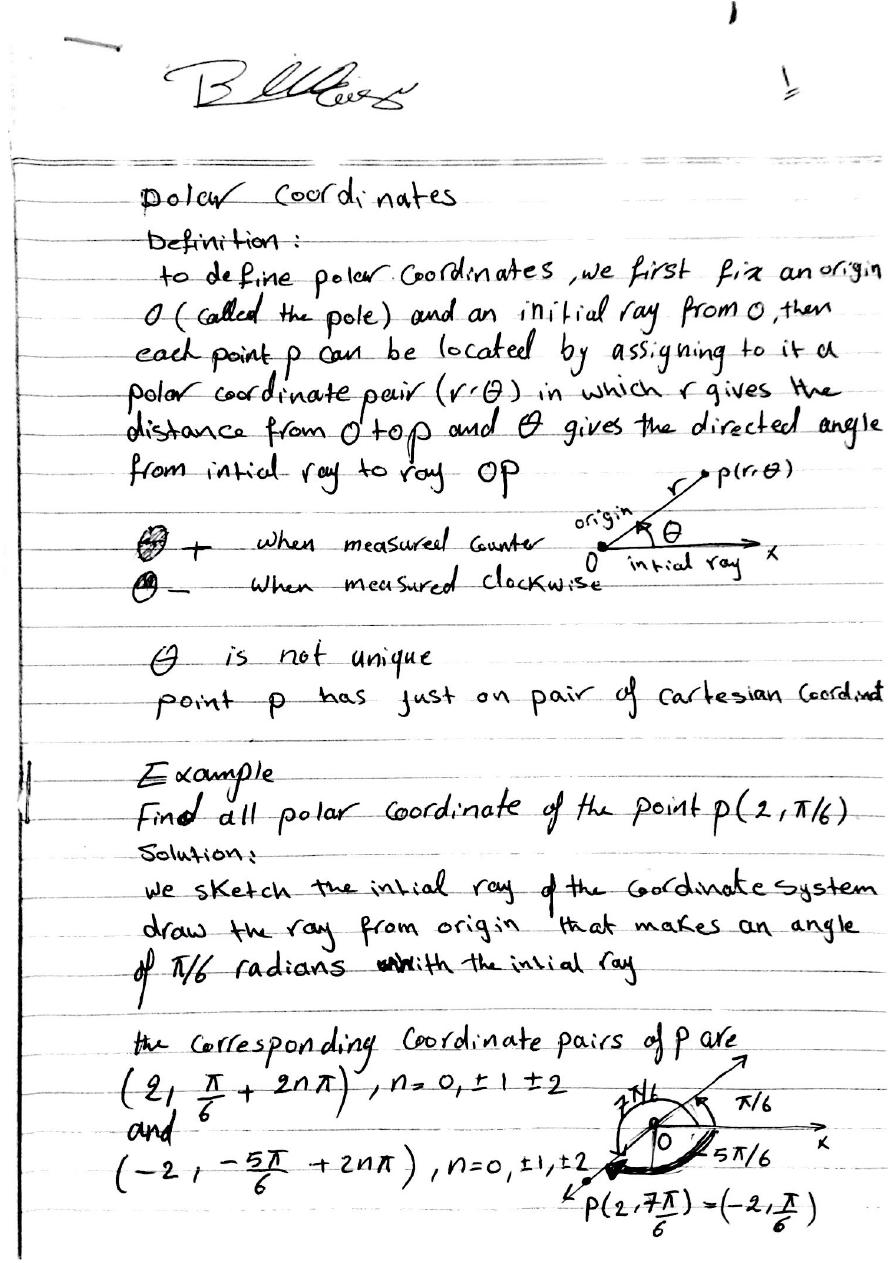 Polar Coordinates
Definition :
to define polar Coordinates, we first fix an origin
O (called the pole) and an initial ray from O, then
each point p can be located by assigning to it a
polar coordinate pair (r,θ) in which r gives the
distance from O to p and θ gives the directed angle
from intial ray to ray OP
r p(r,θ)
origin θ
O intial ray x
+ when measured Counter
θ - when measured clockwise
θ is not unique
point p has just on pair of cartesian Coordinat
Example
Find all polar Coordinate of the point p(2, π/6)
Solution:
we sketch the intial ray of the Coordinate system
draw the ray from origin that makes an angle
of π/6 radians with the intial ray
the corresponding Coordinate pairs of p are
(2, π/6 + 2nπ), n = 0, ±1 ±2
and
(-2, -5π/6 + 2nπ), n=0, ±1, ±2
7π/6 π/6
O -5π/6 x
P(2, 7π/6) = (-2, π/6)